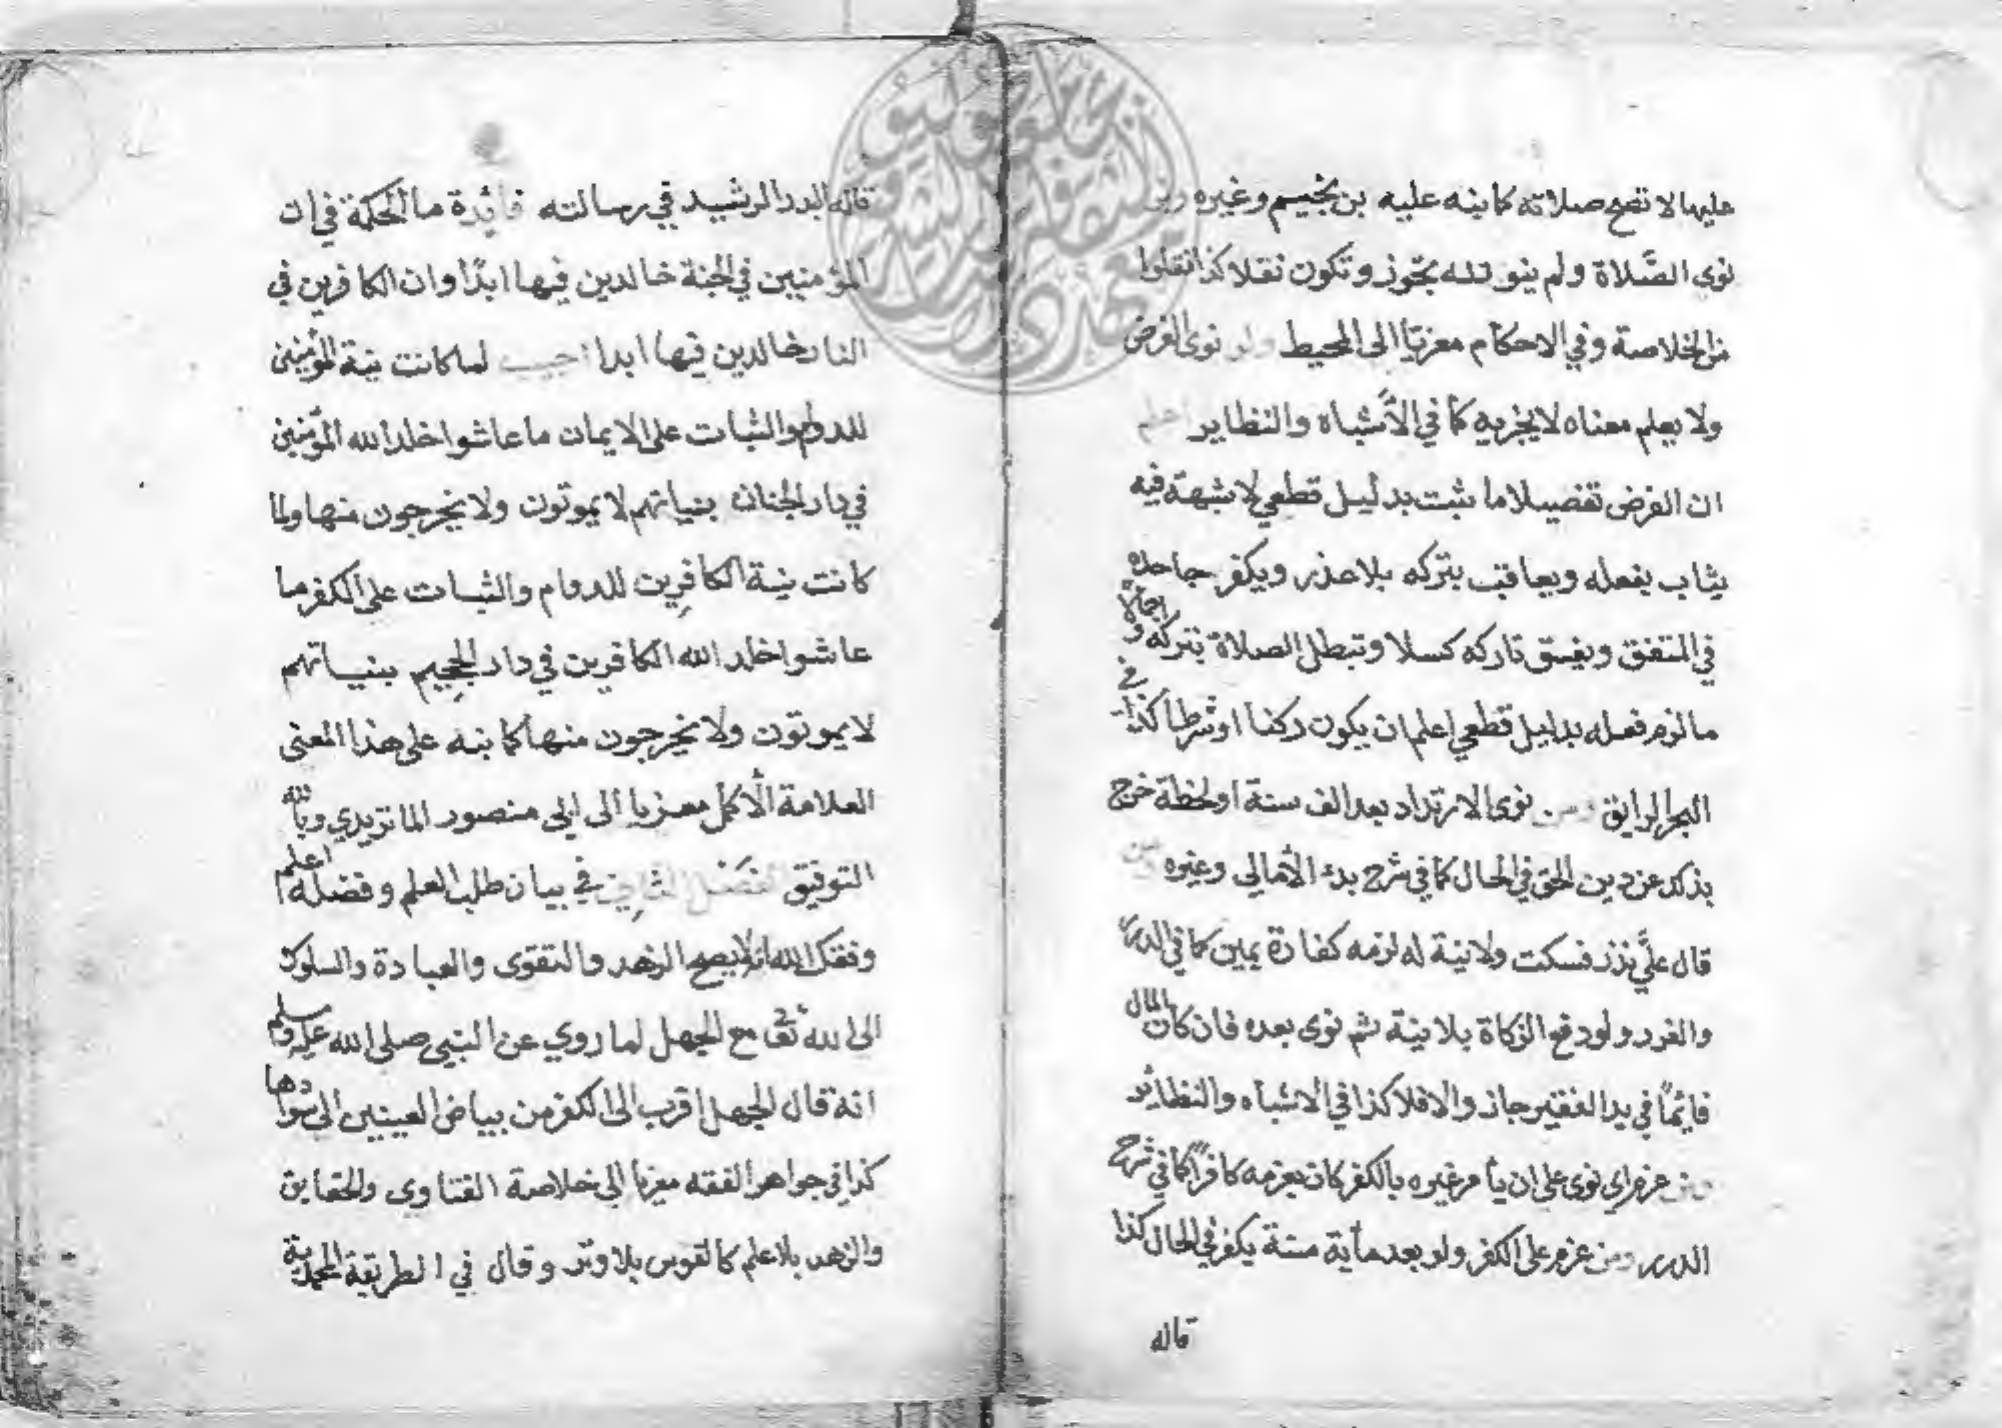 عليها لا تصح صلاته كما بنه عليه بن نجيم وغيره ولو
نوى الصَّلاة ولم ينو لله يجوز وتكون نفلا كذا نقلوا
من الخلاصة وفي الاحكام معزيا الى المحيط ولو نوى الفرض
ولا يعلم معناه لا يجزيه كما في الأشباه والنظاير اعلم
ان الفرض تفصيلا ما ثبت بدليل قطعي لا شبهة فيه
يثاب بفعله ويعاقب بتركه بلا عذر ويكفر جاحده
في المتفق ويفسق تاركه كسلا وتبطل الصلاة بتركه واجمالا
ما لزم فعله بدليل قطعي اعلم ان يكون ركنا او شرطا كذا في
البحر الرايق ومن نوى الارتداد بعد الف سنة او لحظة خرج
بذلك عن دين الحق في الحال كما في شرح بدء الأمالي وغيره من
قال عليَّ نذر فسكت ولا نية له لزمه كفارة يمين كما في الدرر
والغرر ولو دفع الزكاة بلا نية ثم نوى بعده فان كان المال
قايمًا في يد الفقير جاز والا فلا كذا في الاشباه والنظاير
ومن عزم اي نوى على ان يأمر غيره بالكفر كان بعزمه كافرًا كما في شرح
الدرر ومن عزم على الكفر ولو بعد مأية سنة يكفر في الحال كذا
قاله
قاله البدر الرشيد في رسالته فائدة ما الحكمة في ان
المؤمنين في الجنة خالدين فيها ابدًا وان الكافرين في
النار خالدين فيها ابدا اجيب لما كانت نية المؤمنين
للدوام والثبات على الايمان ما عاشوا خلد الله المؤمنين
في دار الجنان بنياتهم لا يموتون ولا يخرجون منها ولما
كانت نية الكافرِين للدوام والثبات على الكفر ما
عاشوا خلد الله الكافرين في دار الجحِيم بنياتهم
لا يموتون ولا يخرجون منها كما بنه على هذا المعنى
العلامة الأكمل معزيا الى ابى منصور الماتريدي وبالله
التوفيق الفصَل الثانِي في بيان طلب العلم وفضله اعلم
وفقك الله انه لا يصح الزهد والتقوى والعبادة والسلوك
الى الله تعالى مع الجهل لما روي عن النبي صلى الله عليه وسلم
انه قال الجهل اقرب الى الكفر من بياض العينين الى سوادها
كذا في جواهر الفقه معزيا الى خلاصة الفتاوى والحقاين
والزهد بلا علم كالقوس بلا وتر وقال في الطريقة المحمدية